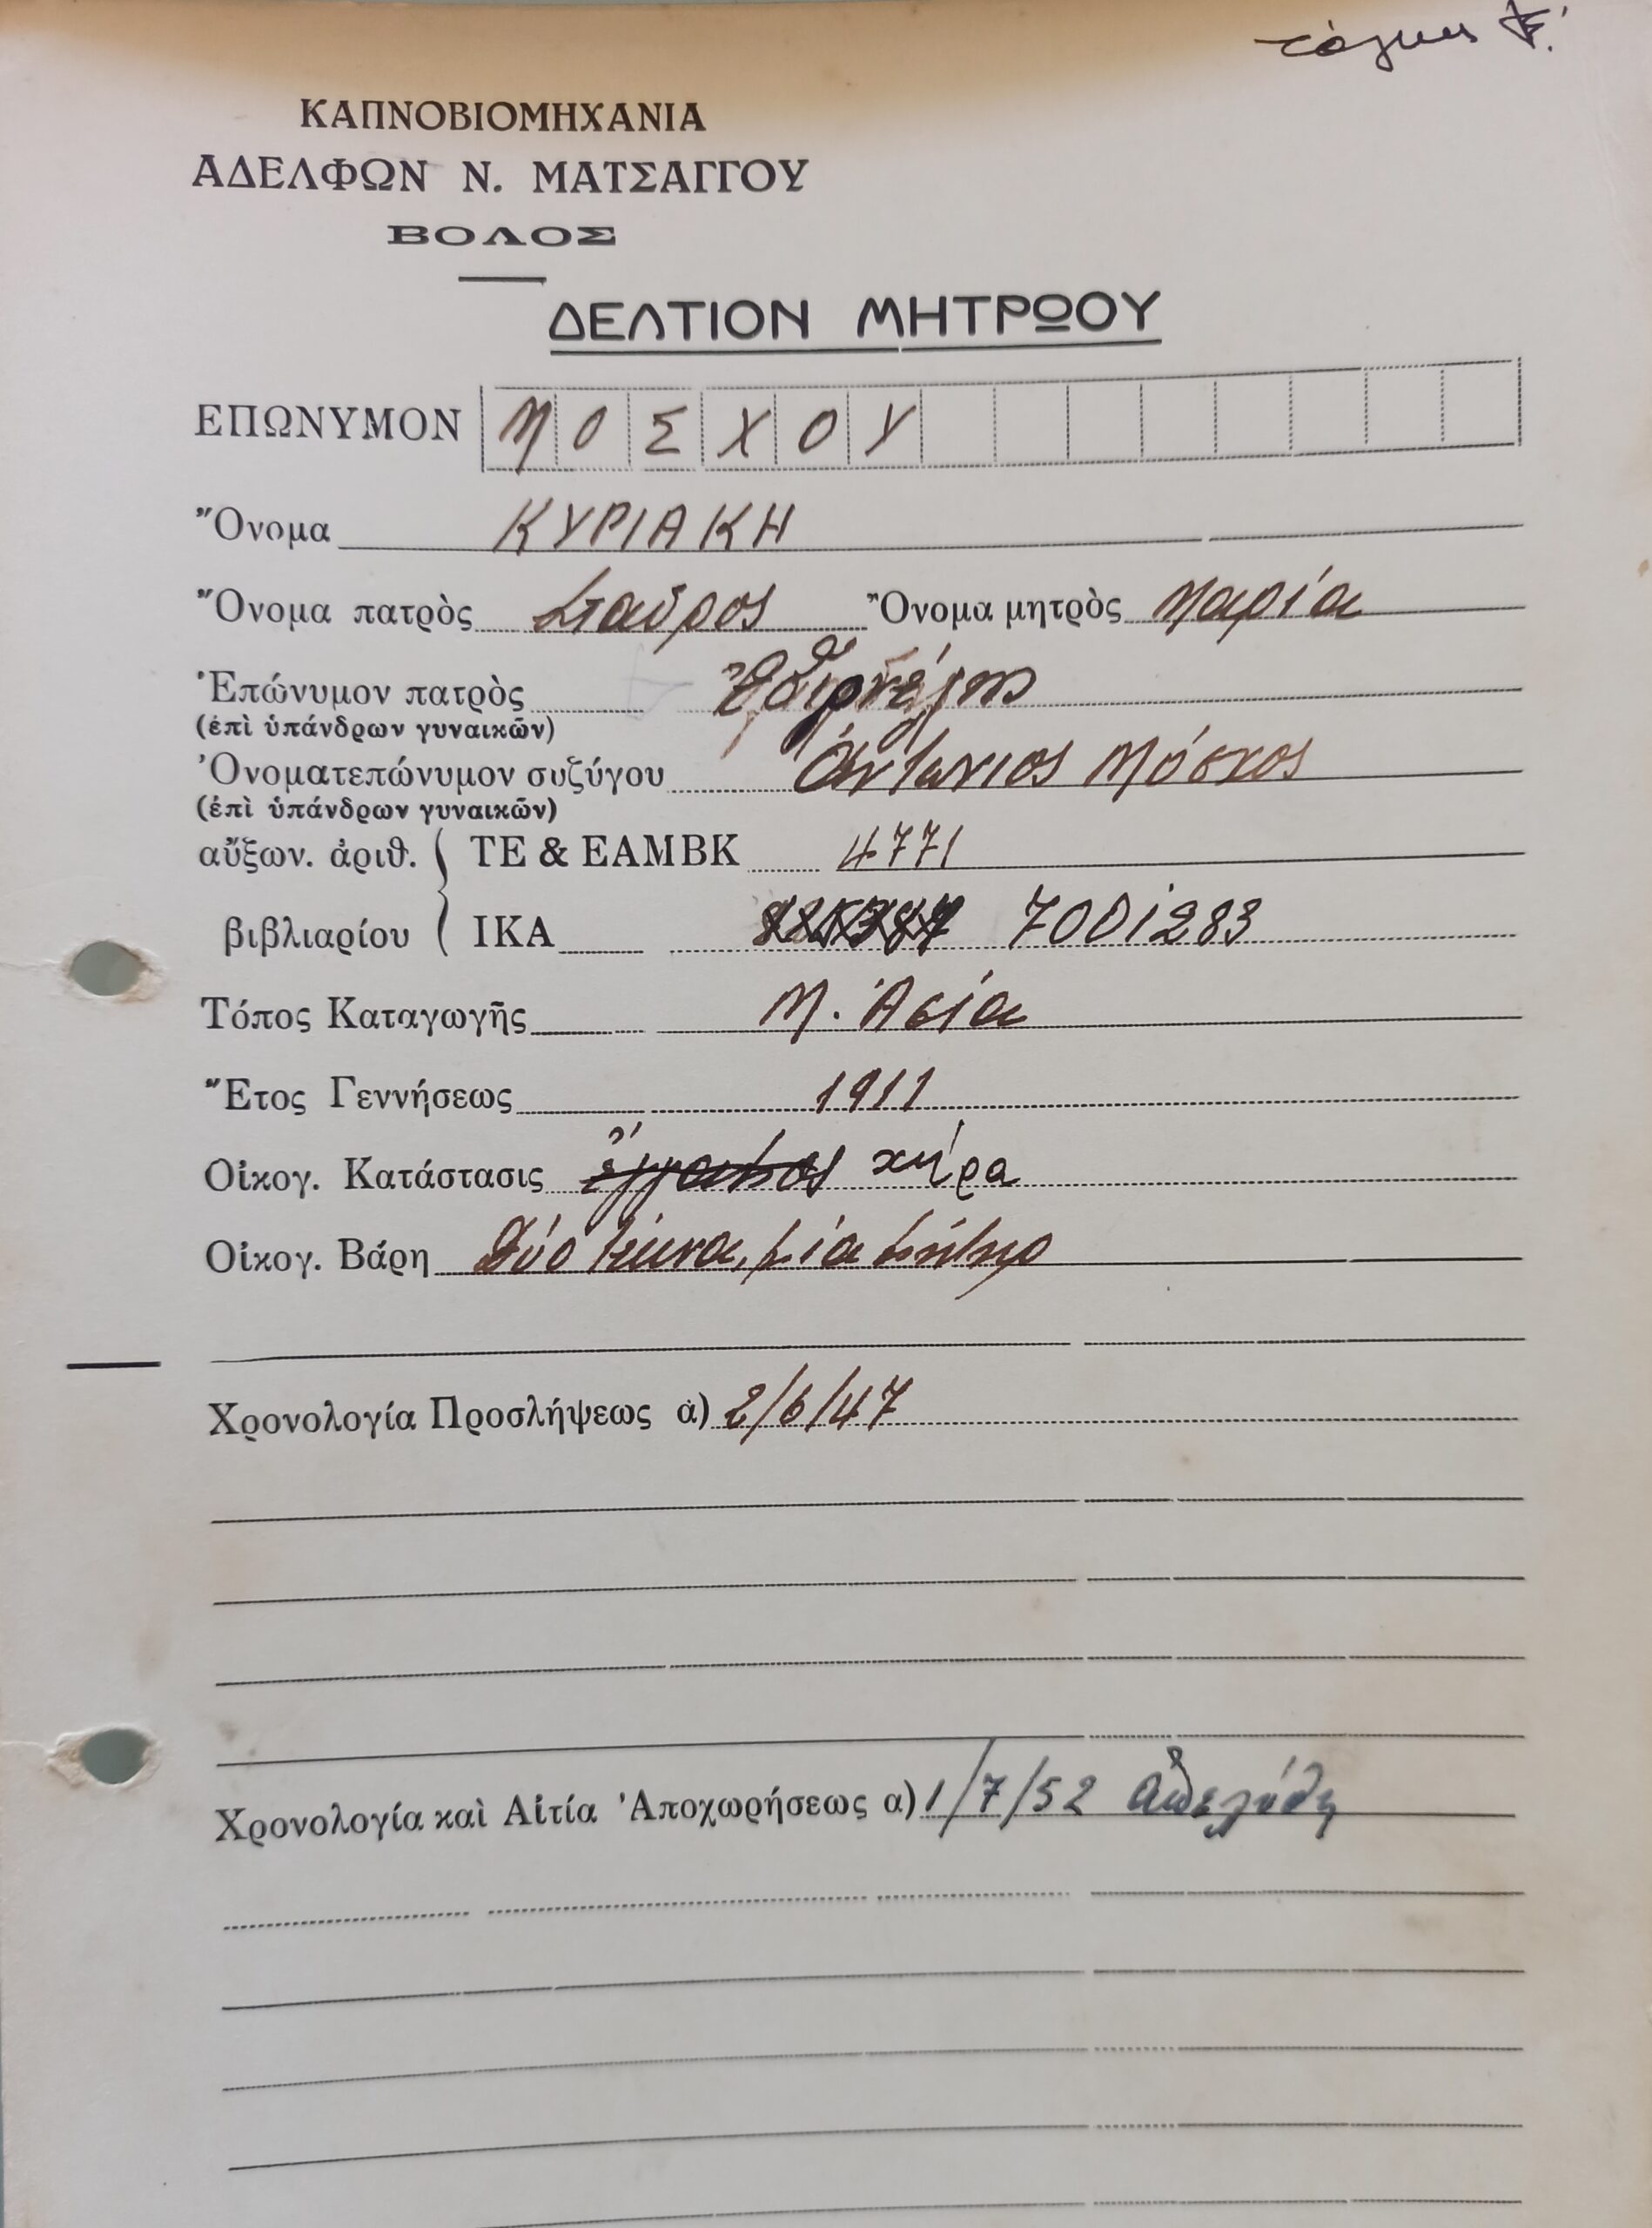 ΚΑΠΝΟΒΙΟΜΗΧΑΝΙΑ
ΑΔΕΛΦΩΝ Ν. ΜΑΤΣΑΓΓΟΥ
ΒΟΛΟΣ
ΔΕΛΤΙΟΝ ΜΗΤΡΩΟΥ
ΕΠΩΝΥΜΟΝ ΜΟΣΧΟΥ
Ὄνομα ΚΥΡΙΑΚΗ
Ὄνομα πατρὸς Σταῦρος Ὄνομα μητρὸς Μαρία
Ἐπώνυμον πατρὸς
(ἐπὶ ὑπάνδρων γυναικῶν)
Ὀνοματεπώνυμον συζύγου Ἀντώνιος Μόσχος
(ἐπὶ ὑπάνδρων γυναικῶν)
αὔξων. ἀριθ. ΤΕ & ΕΑΜΒΚ 4771
βιβλιαρίου ΙΚΑ 7001283
Τόπος Καταγωγῆς Μ. Ἀσία
Ἔτος Γεννήσεως 1911
Οἰκογ. Κατάστασις ἔγγαμος χήρα
Οἰκογ. Βάρη Δύο τέκνα, μία μήτηρ
Χρονολογία Προσλήψεως α) 2/6/47
Χρονολογία καὶ Αἰτία Ἀποχωρήσεως α) 1/7/52 ἀπελύθη